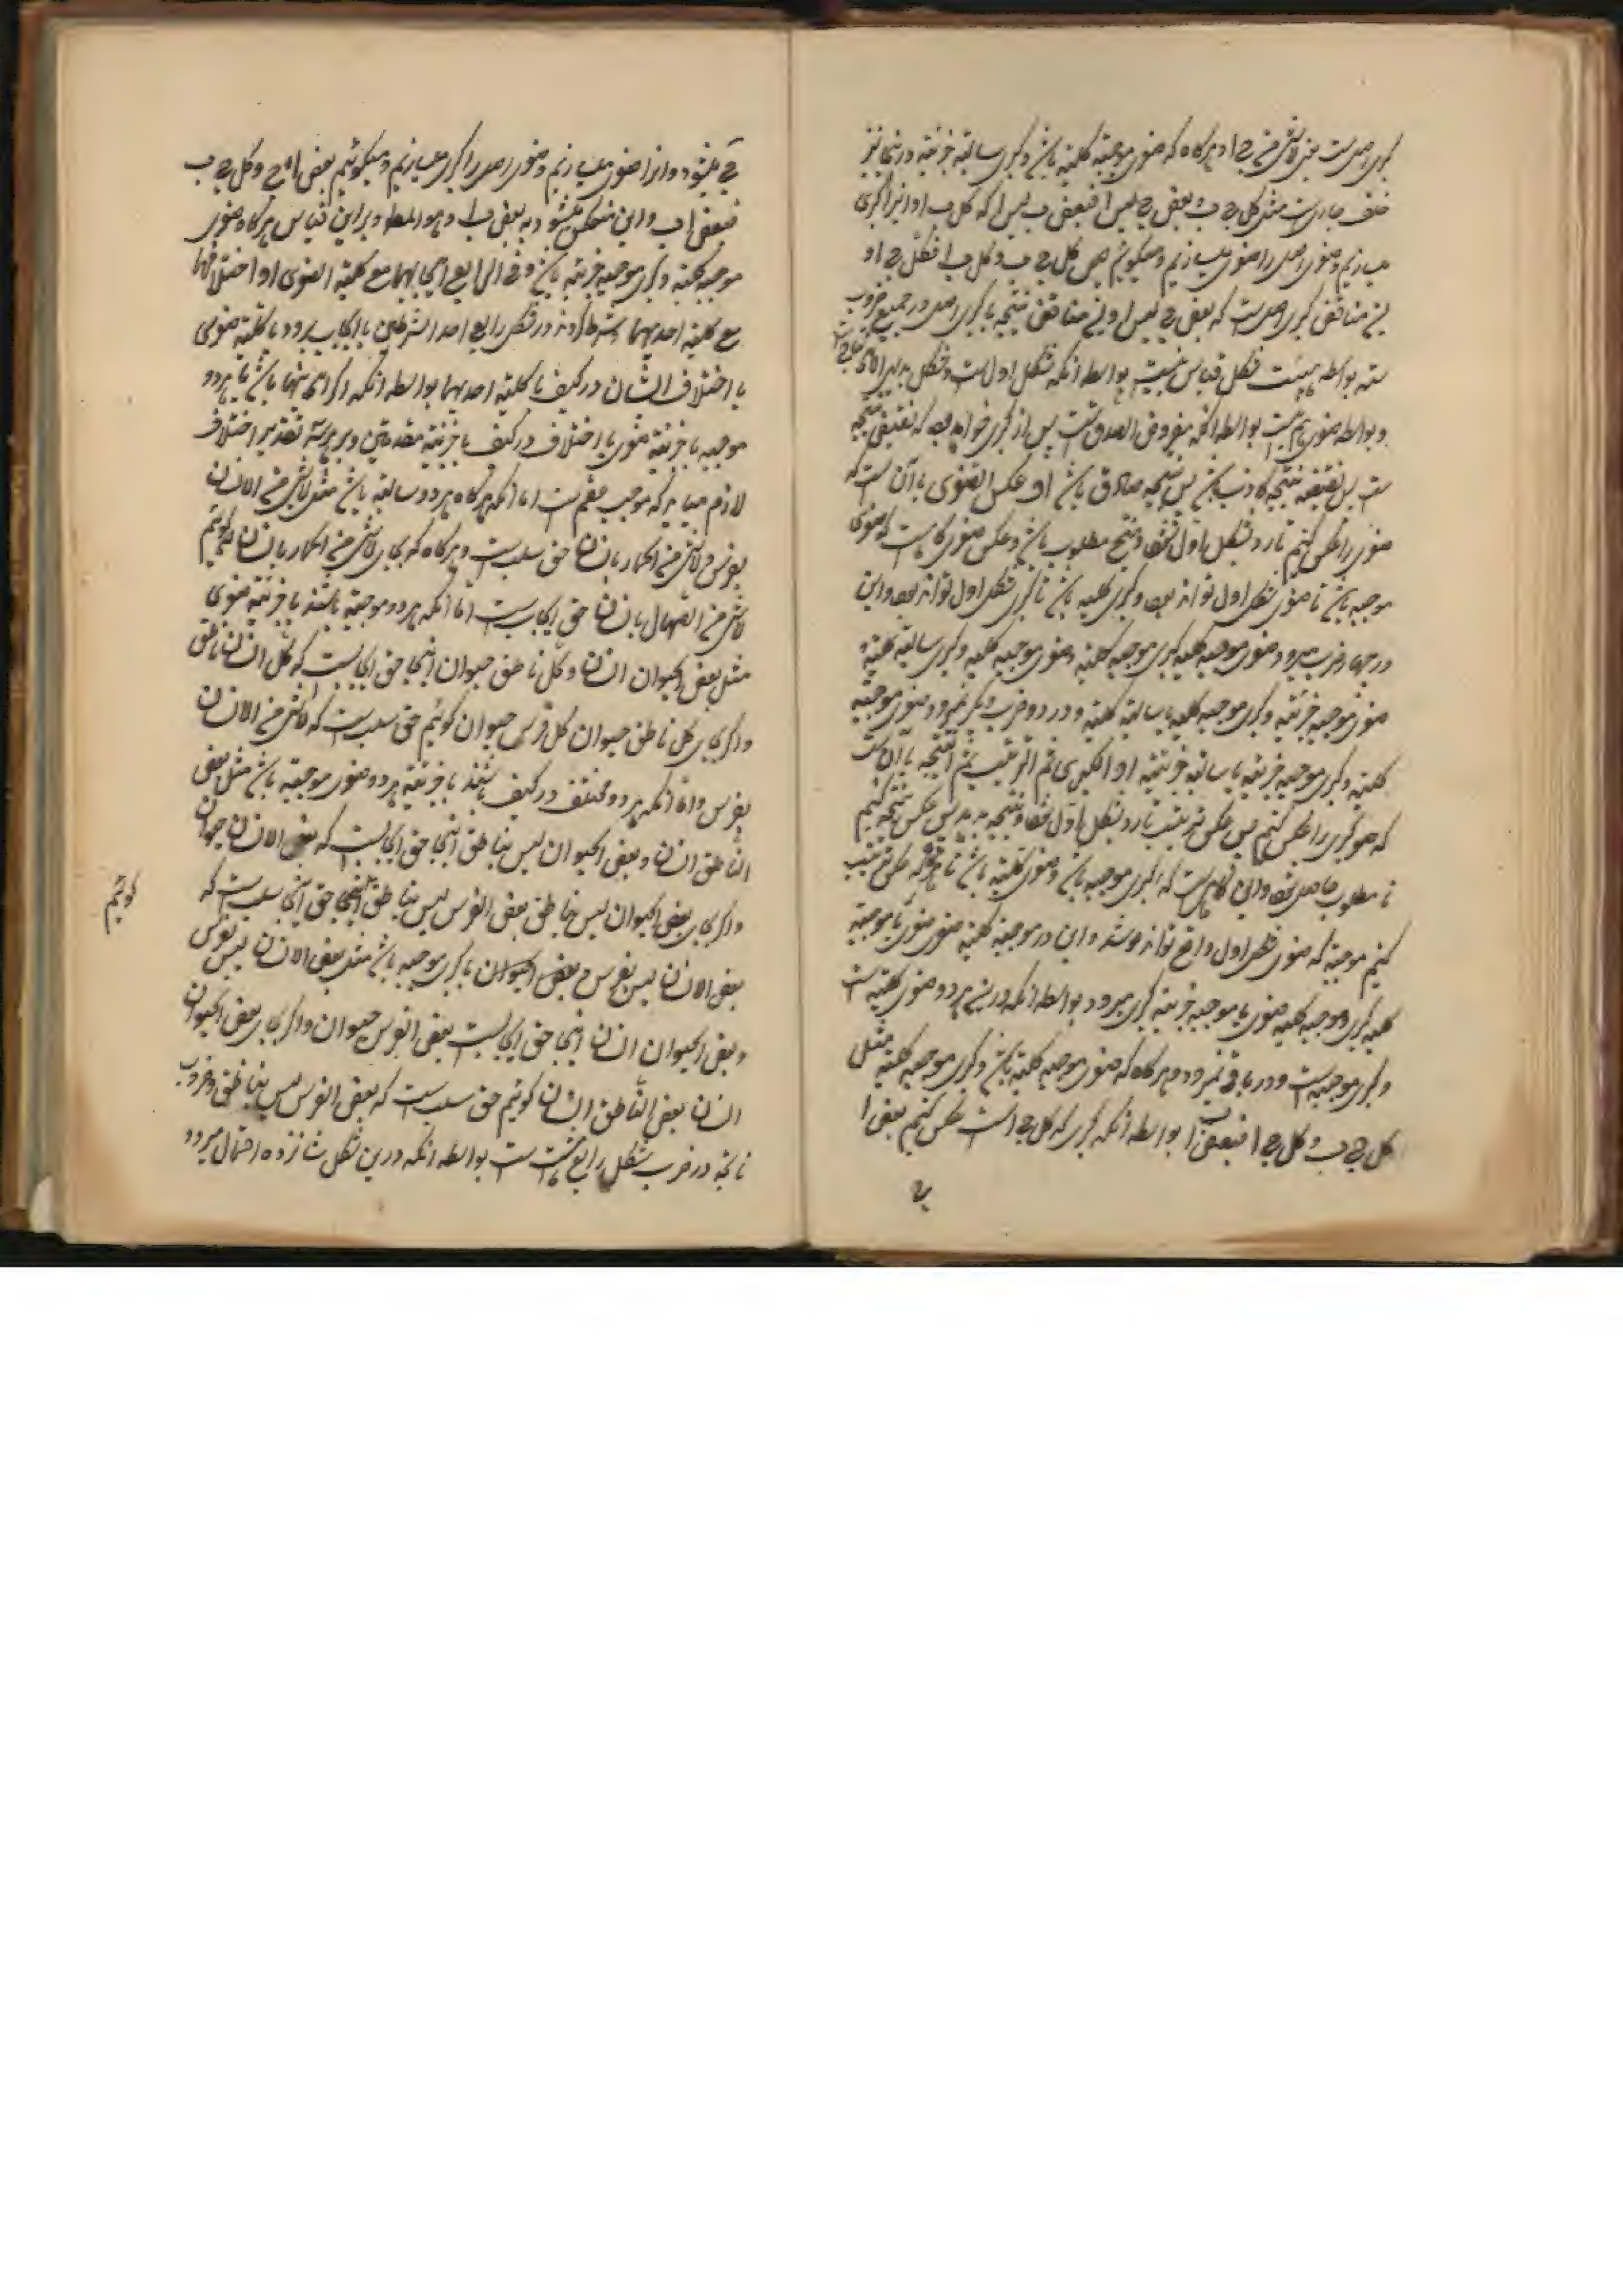 کبری اصل است یعنی لاشیء من ج ا و هرگاه که صغری موجبه کلیه باشد و کبری سالبه جزئیه در اینجا نیز
خلف جاریست مثل کل ج ب و بعض ج لیس ا فبعض ب لیس ا که کل ب ا و این را کبری
میسازیم و صغری اصل را صغری میسازیم و میگوئیم کل ج ب و کل ب ا فکل ج ا و
این مناقض کبری اصل است که بعض ج لیس ا و این مناقض نتیجه با کبری اصل در جمیع ضروب
نه بواسطه هیئت شکل قیاس نیست بواسطه آنکه شکل اول است و شکل بدیهی الانتاج
و بواسطه صغری هم نیست بواسطه آنکه مفروض الصدق است پس از کبری خواهد بود که نقیض نتیجه
است پس نقیض نتیجه کاذب باشد پس نتیجه صادق باشد او عکس الصغری یا آن است که
صغری را عکس کنیم تا رد بشکل اول شود و منتج مطلوب باشد و عکس صغری گاهیست که صغری
موجبه باشد تا صغری شکل اول تواند بود و کبری کلیه باشد تا کبری شکل اول تواند بود و این
در چهار ضرب میرود صغری موجبه کلیه کبری موجبه کلیه و صغری موجبه کلیه و کبری سالبه کلیه و
صغری موجبه جزئیه و کبری موجبه کلیه یا سالبه کلیه و در دو ضرب دیگر نمیرود صغری موجبه
کلیه و کبری موجبه جزئیه یا سالبه جزئیه او الکبری ثم الترتیب ثم النتیجه یا آن است
که کبری را عکس کنیم پس عکس ترتیب تا رد بشکل اول شود و نتیجه بدهد پس عکس نتیجه کنیم
تا مطلوب حاصل شود و این گاهیست که کبری موجبه باشد و صغری کلیه باشد تا هرگاه که عکس ترتیب
کنیم موجبه که صغری شکل اول واقع تواند شد و این در موجبه کلیه صغری با موجبه
کلیه کبری و موجبه کلیه صغری با موجبه جزئیه کبری میرود بواسطه آنکه درین هر دو صغری کلیه است
و کبری موجبه است و در باقی نمیرود و هرگاه که صغری موجبه کلیه باشد و کبری موجبه کلیه مثل
کل ج ب و کل ج ا فبعض ب ا بواسطه آنکه کبری که کل ج ا است عکس کنیم بعض ا
ج میشود و او را صغری میسازیم و صغری اصل را کبری میسازیم و میگوئیم بعض ا ج و کل ج ب
فبعض ا ب و این منعکس میشود به بعض ب ا و هو المط و بر این قیاس هرگاه صغری
موجبه کلیه و کبری موجبه جزئیه باشد و فی الرابع ایجابهما مع کلیة الصغری او اختلافهما
مع کلیة احدیهما شرط کردند در شکل رابع احد الشرطین یا ایجاب هر دو با کلیه صغری
یا اختلاف ایشان در کیف با کلیه احدیهما بواسطه آنکه اگر احدهما نباشد یا هر دو
موجبه با جزئیه صغری یا اختلاف در کیف با جزئیه مقدمتین و بر هر سه تقدیر اختلاف
لازم میاید که موجب عقم است اما آنکه هرگاه هر دو سالبه باشد مثل لاشیء من الانسان
بفرس و لاشیء من الحمار بانسان حق سلب است و هرگاه که بجای لاشیء من الحمار بانسان گوئیم
لاشیء من الصهال بانسان حق ایجاب است اما آنکه هر دو موجبه باشند با جزئیه صغری
مثل بعض الحیوان انسان و کل ناطق حیوان اینجا حق ایجابست که کل انسان ناطق
و اگر بجای کل ناطق حیوان کل فرس حیوان گوئیم حق سلب است که لاشیء من الانسان
بفرس و اما آنکه هر دو مختلف در کیف باشند با جزئیه هر دو صغری موجبه باشد مثل بعض
الناطق انسان و بعض الحیوان لیس بناطق اینجا حق ایجابست که بعض الانسان حیوان
و اگر بجای بعض الحیوان لیس بناطق بعض الفرس لیس بناطق اینجا حق سلب است که
گوئیم
بعض الانسان لیس بفرس و بعض الحیوان یا کبری موجبه باشد مثل بعض الانسان لیس بفرس
و بعض الحیوان انسان اینجا حق ایجابست بعض الفرس حیوان و اگر بجای بعض الحیوان
انسان بعض الناطق انسان گوئیم حق سلب است که بعض الفرس لیس بناطق و ضروب
ناتجه در ضرب شکل رابع هشت است بواسطه آنکه درین شکل شانزده احتمال میرود